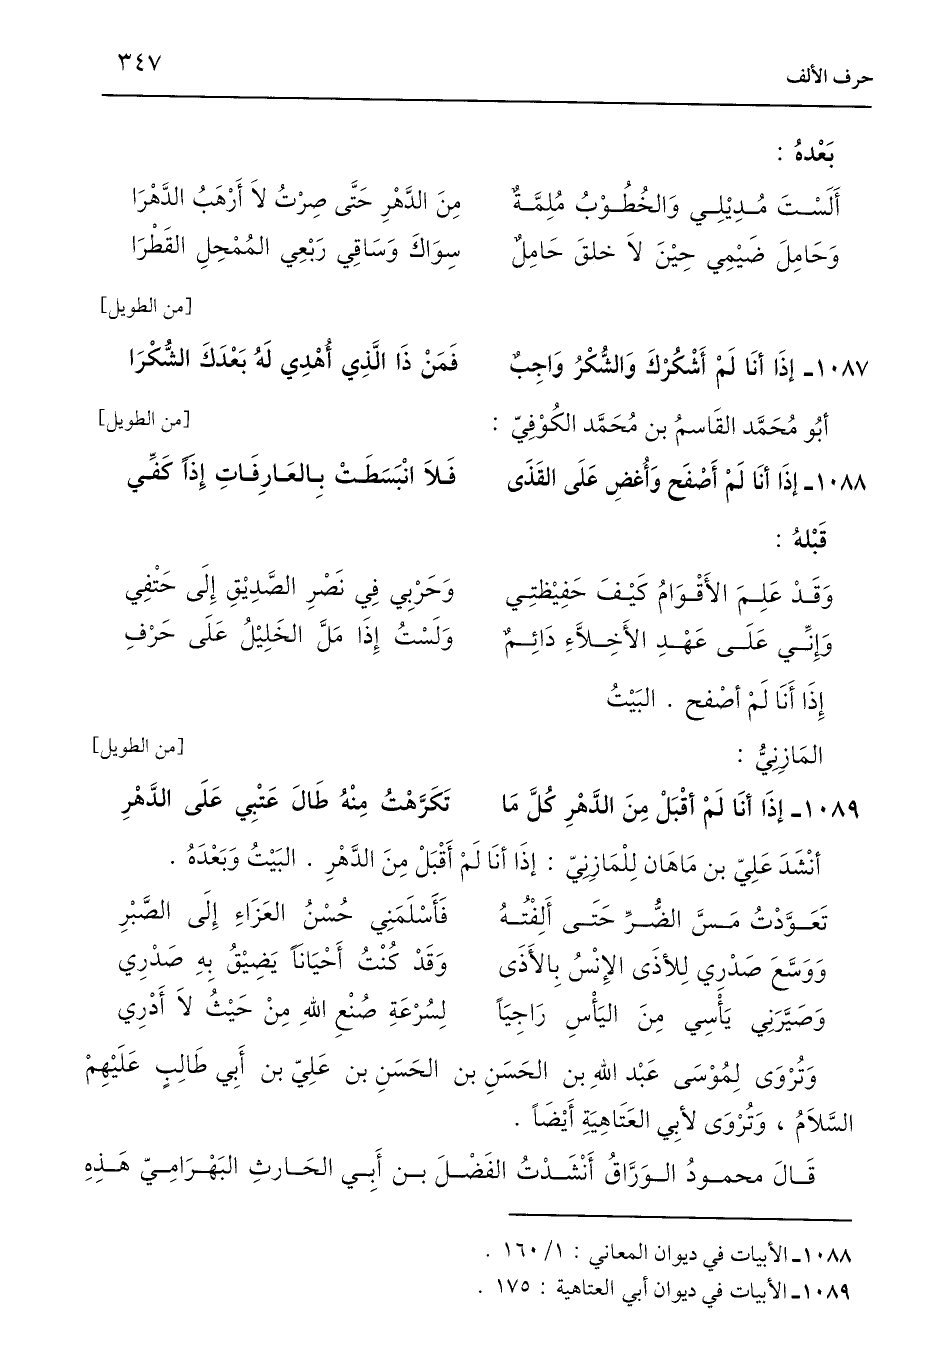 حرف الألف ٣٤٧
بَعْدهُ :
أَلَسْتَ مُـدِيْلِـي وَالخُطُـوْبُ مُلِمَّـةٌ مِنَ الدَّهْرِ حَتَّى صِرْتُ لاَ أَرْهَبُ الدَّهْرَا
وَحَامِلَ ضَيْمِي حِيْنَ لاَ خلقَ حَامِلٌ سِوَاكَ وَسَاقِي رَبْعِي المُمْحِلِ القَطْرَا
[من الطويل]
١٠٨٧ـ إذَا أنَا لَمْ أَشْكُرْكَ وَالشُّكْرُ وَاجِبٌ فَمَنْ ذَا الَّذِي أُهْدِي لَهُ بَعْدَكَ الشُّكْرَا
أبُو مُحَمَّد القَاسمُ بن مُحَمَّد الكُوْفِيّ : [من الطويل]
١٠٨٨ـ إذَا أنَا لَمْ أَصْفَح وَأُغضِ عَلَى القَذَى فَـلاَ انْبَسَطَـتْ بِـالعَـارِفَـاتِ إِذَاً كَفِّـي
قَبْلهُ :
وَقَـدْ عَلِـمَ الأَقْـوَامُ كَيْـفَ حَفِيْظَتِـي وَحَرْبِي فِي نَصْرِ الصَّدِيْقِ إِلَى حَتْفِي
وَإِنِّـي عَلَـى عَهْـدِ الأَخِـلاَّءِ دَائِـمٌ وَلَسْتُ إِذَا مَلَّ الخَلِيْلُ عَلَى حَرْفِ
إِذَا أَنَا لَمْ أصْفح . البَيْتُ
المَازِنِيُّ : [من الطويل]
١٠٨٩ـ إذَا أنَا لَمْ أقْبَلْ مِنَ الدَّهْرِ كُلَّ مَا تَكَرَّهْتُ مِنْهُ طَالَ عَتْبِي عَلَى الدَّهْرِ
أنْشَدَ عَلِيّ بن مَاهَان لِلْمَازِنِيّ : إذَا أنَا لَمْ أَقْبَلْ مِنَ الدَّهْرِ . البَيْتُ وَبَعْدَهُ .
تَعَـوَّدْتُ مَـسَّ الضُّـرِّ حَتَّـى أَلِفْتُـهُ فَأَسْلَمَنِي حُسْنُ العَزَاءِ إِلَى الصَّبْرِ
وَوَسَّعَ صَدْرِي لِلأذَى الإِنْسُ بِالأذَى وَقَدْ كُنْتُ أَحْيَاناً يَضِيْقُ بِهِ صَدْرِي
وَصَيَّرَنِي يَأْسِي مِنَ اليَأْسِ رَاجِيَاً لِسُرْعَةِ صُنْعِ اللهِ مِنْ حَيْثُ لاَ أَدْرِي
وَتُرْوَى لِمُوْسَى عَبْد اللهِ بن الحَسَنِ بن الحَسَنِ بن عَلِيّ بن أَبِي طَالِبٍ عَلَيْهِمْ
السَّلاَمُ ، وَتُرْوَى لأبِي العَتَاهِيَةِ أيْضَاً .
قَـالَ محمـودُ الـوَرَّاقُ أنْشَـدْتُ الفَضْـلَ بـن أَبِـي الحَـارثِ البَهْـرَامِـيّ هَـذِهِ
١٠٨٨ـ الأبيات في ديوان المعاني : ١/ ١٦٠ .
١٠٨٩ـ الأبيات في ديوان أبي العتاهية : ١٧٥ .